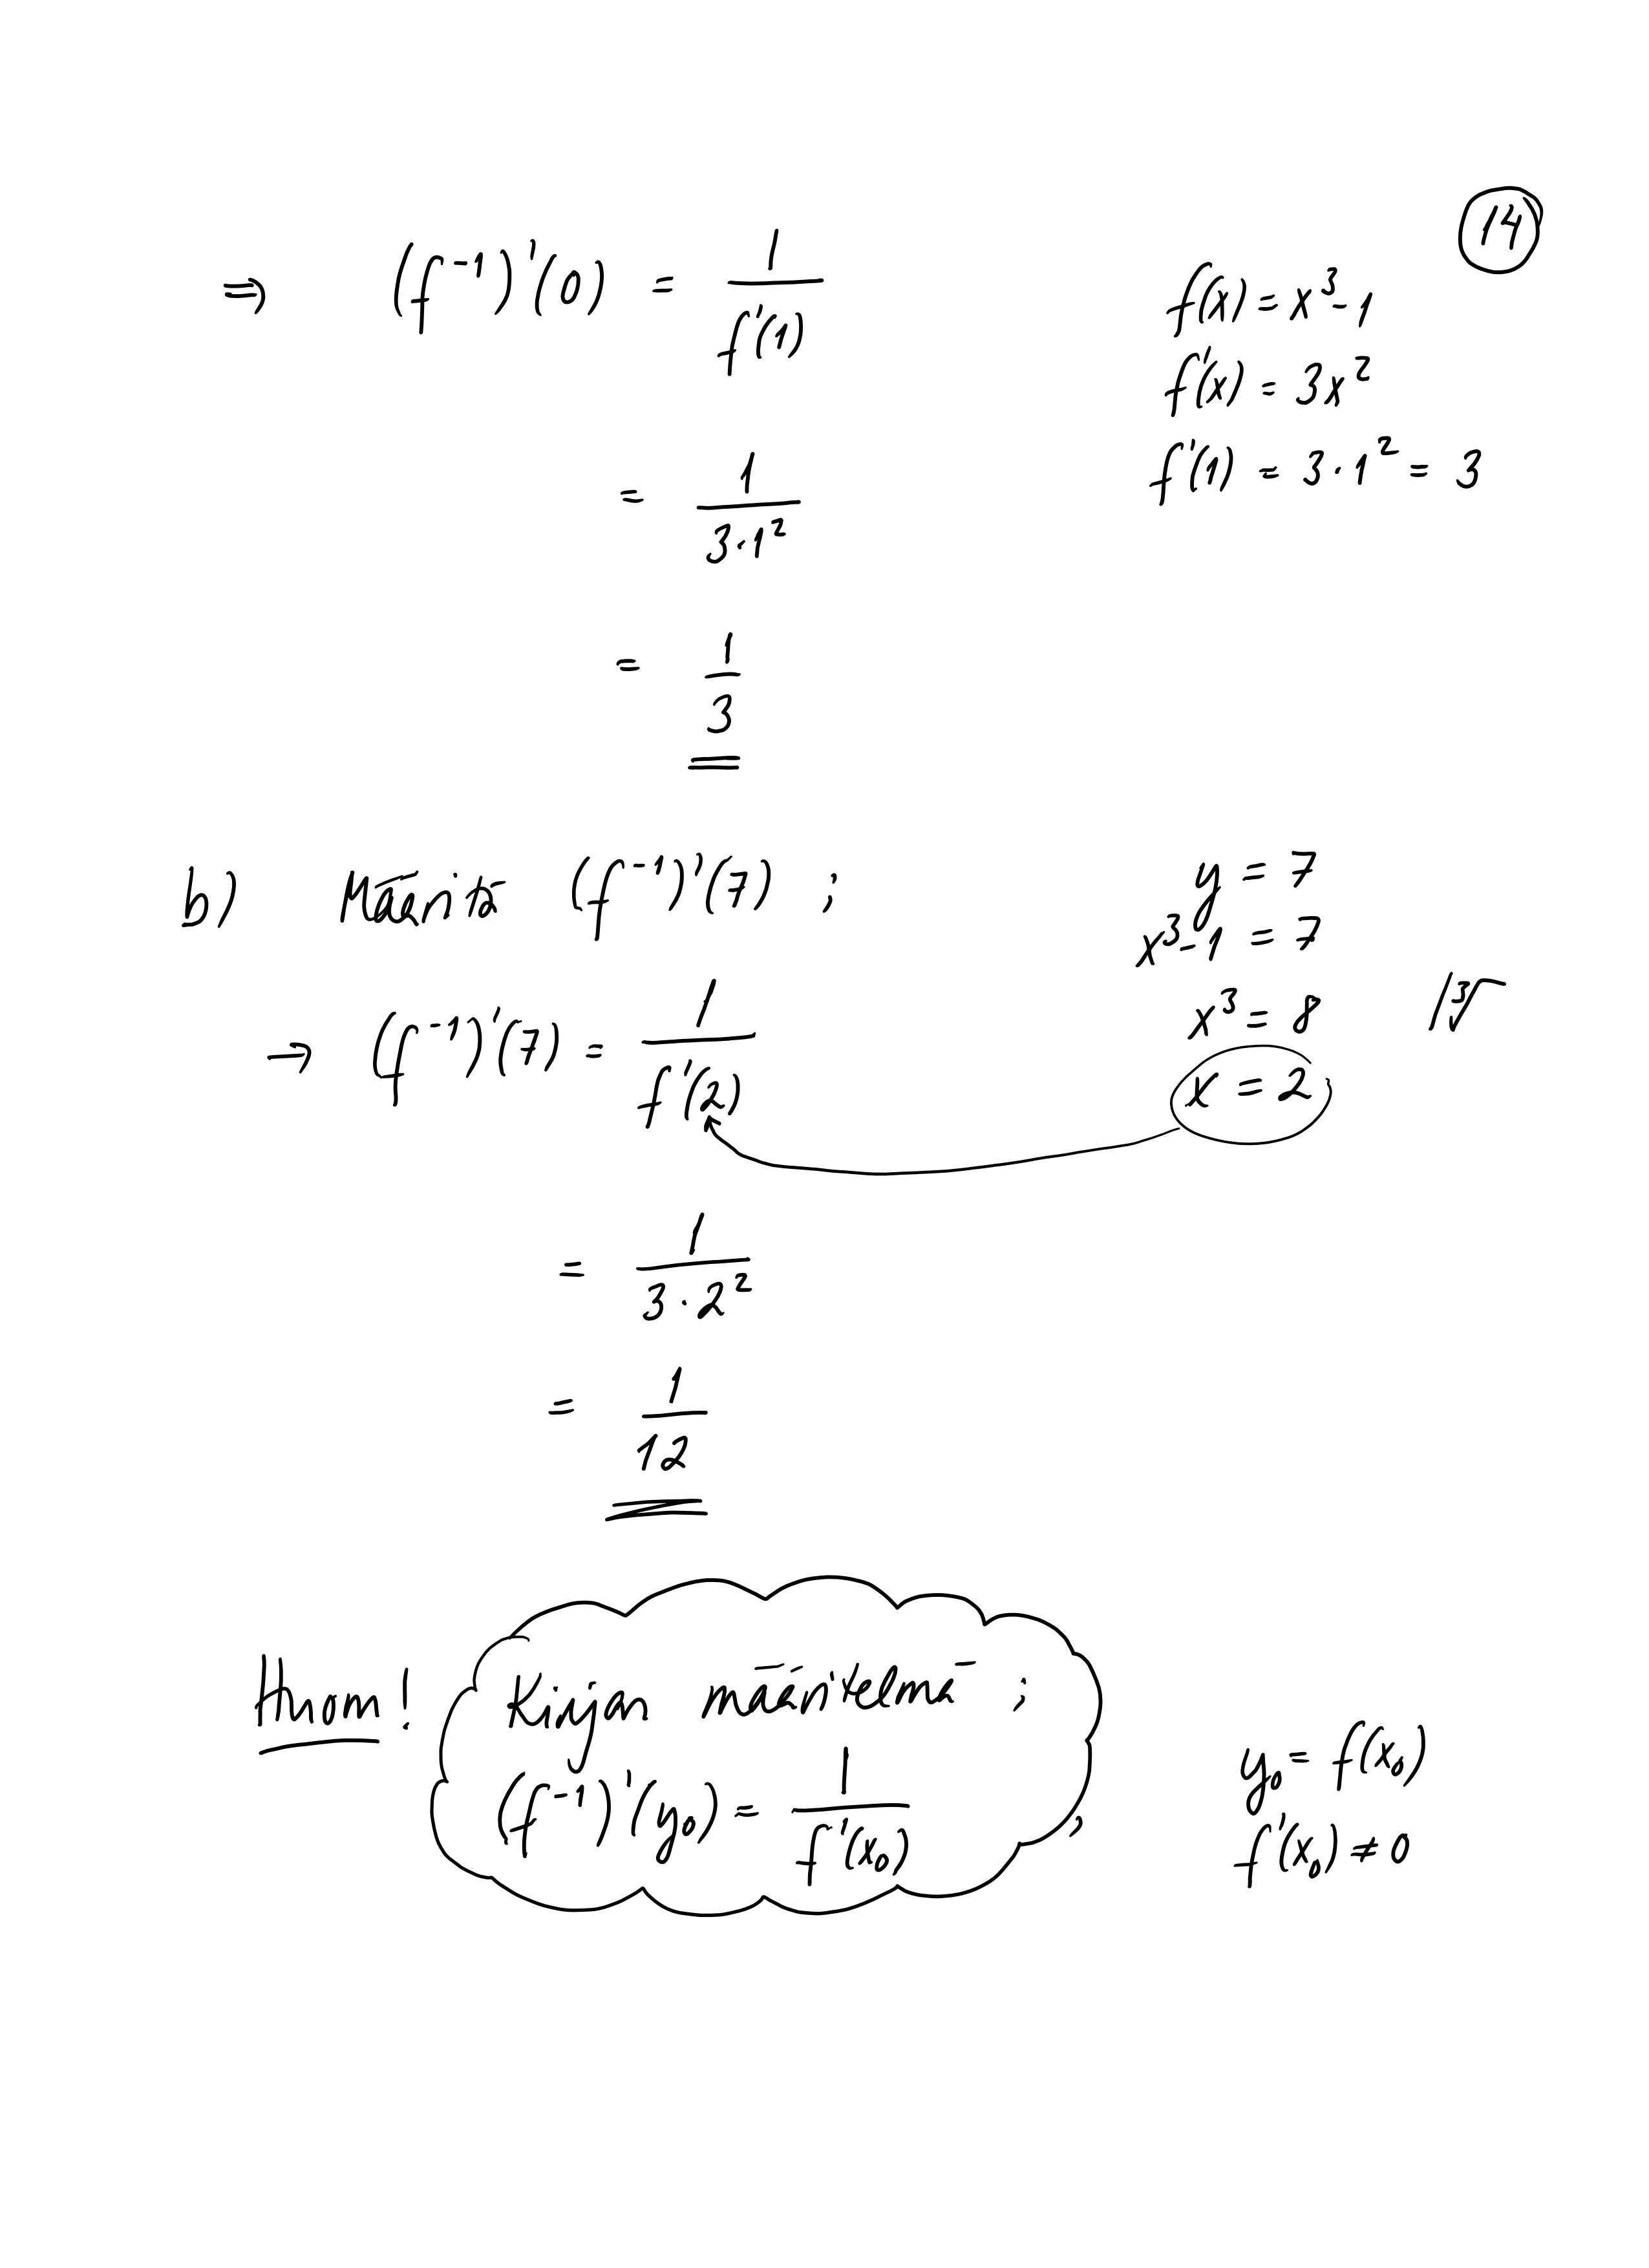 14
⇒ (f⁻¹)'(0) = 1/f'(1)
f(x) = x³-1
f'(x) = 3x²
f'(1) = 3·1² = 3
= 1/(3·1²)
= 1/3
b) Määritä (f⁻¹)'(7) ;
y = 7
x³-1 = 7
x³ = 8 |∛
x = 2
→ (f⁻¹)'(7) = 1/f'(2)
= 1/(3·2²)
= 1/12
Huom! Kirjan määritelmä ;
(f⁻¹)'(y₀) = 1/f'(x₀) ,
y₀ = f(x₀)
f'(x₀) ≠ 0